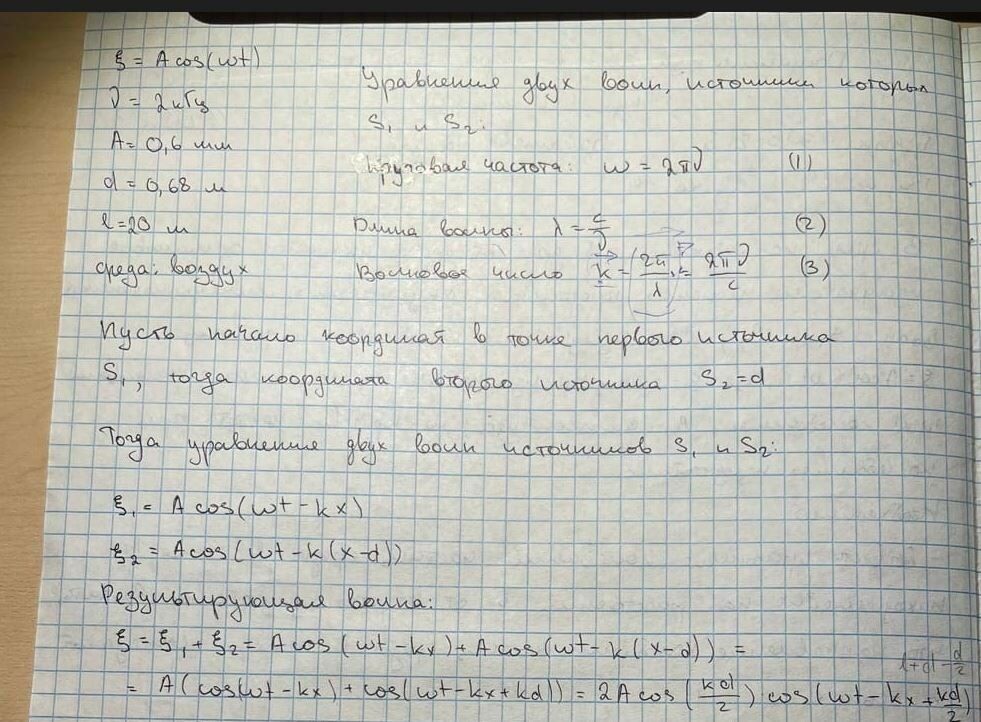 ξ = A cos(ωt)
Уравнение двух волн, источники которых
ν = 2 кГц
S₁ и S₂:
A = 0,6 мм
Круговая частота: ω = 2πν (1)
d = 0,68 м
l = 20 м
Длина волны: λ = c/ν (2)
среда: воздух
Волновое число k = 2π/λ = 2πν/c (3)
Пусть начало координат в точке первого источника
S₁, тогда координата второго источника S₂ = d
Тогда уравнение двух волн источников S₁ и S₂:
ξ₁ = A cos(ωt - kx)
ξ₂ = A cos(ωt - k(x-d))
Результирующая волна:
ξ = ξ₁ + ξ₂ = A cos(ωt - kx) + A cos(ωt - k(x-d)) =
l+d-d/2
= A(cos(ωt - kx) + cos(ωt - kx + kd)) = 2A cos(kd/2) cos(ωt - kx + kd/2)